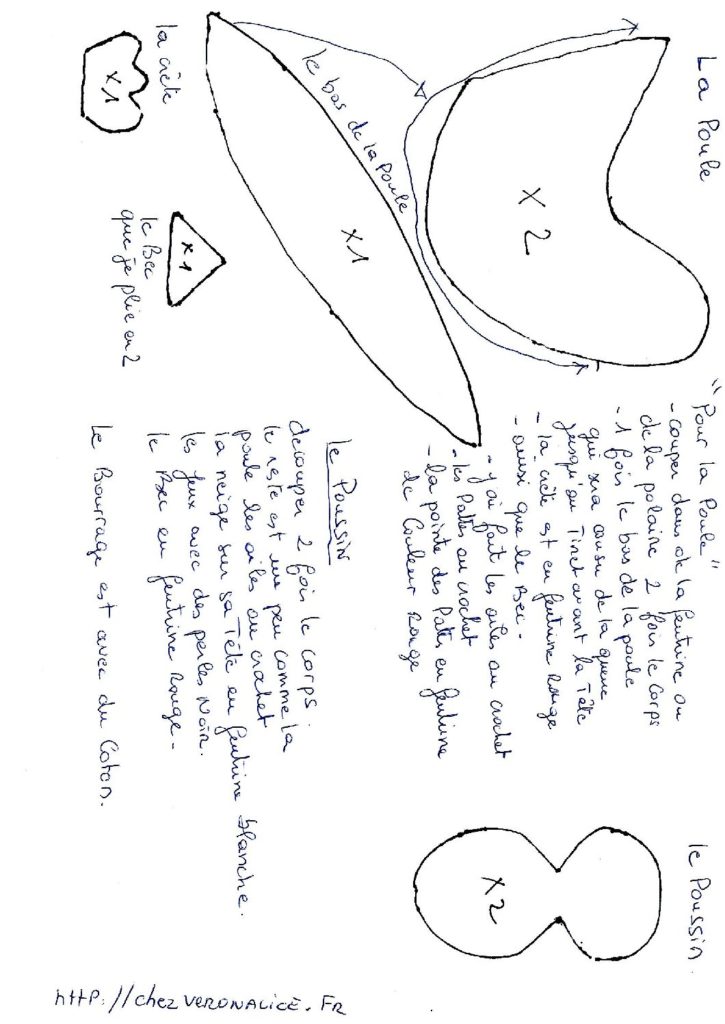 La Poule
x 2
le bas de la Poule
x1
la crête
x1
le Bec
que je plie en 2
x1
"Pour la Poule"
- couper dans de la feutrine ou
de la polaire 2 fois le corps
- 1 fois le bas de la poule
qui sera cousu de la queue
jusqu'au avant la Tête
- la crête est en feutrine rouge
- ainsi que le Bec -
- j'ai fait les ailes au crochet
- les Pattes au crochet
- la pointe des Pattes en feutrine
de couleur Rouge
le Poussin
découper 2 fois le corps.
le reste est un peu comme la
poule les ailes au crochet
la neige sur sa Tête en feutrine blanche.
les yeux avec des perles Noir.
le Bec en feutrine Rouge -
le Bourrage est avec du Coton.
le Poussin.
x2
HTTP://chezVERONALICE.FR